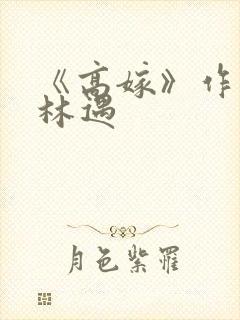 《高嫁》作
林遇
月色紫罹